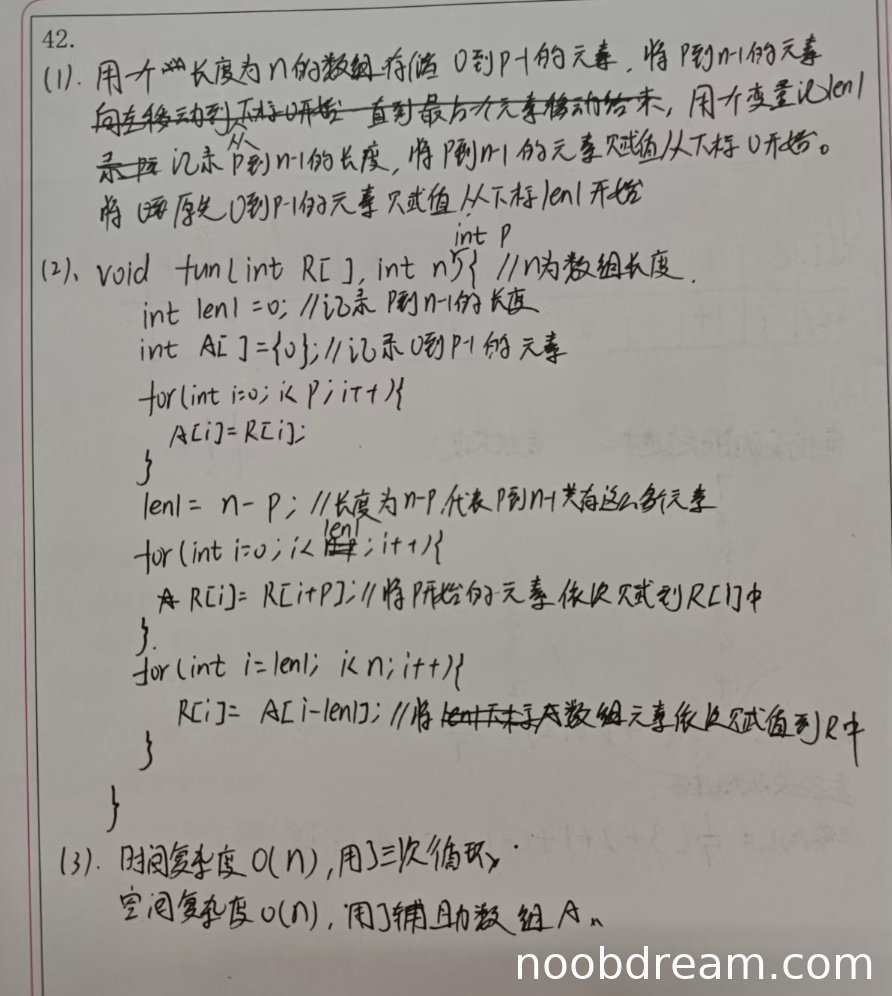 42.
(1). 用一个长度为n的数组存储 0到p-1的元素，将p到n-1的元素
向左移动到下标0开始一直到最后一个元素移动结束，用个变量记len1
录 记录从p到n-1的长度，将p到n-1的元素赋值从下标0开始。
将原先0到p-1的元素赋值从下标len1开始
(2)、void fun(int R[], int n, int p){ //n为数组长度.
int len1=0; //记录p到n-1的长度
int A[]={0}; //记录0到p-1的元素
for(int i=0; i<p; i++){
A[i]=R[i];
}
len1= n-p; //长度为n-p,代表p到n-1共有这么多个元素
for(int i=0; i<len1; i++){
R[i]= R[i+p]; //将p开始的元素依次赋到R[i]中
}.
for(int i=len1; i<n; i++){
R[i]= A[i-len1]; //将len1下标A数组元素依次赋值到R中
}
}
(3). 时间复杂度O(n), 用了三次循环.
空间复杂度O(n), 用了辅助数组A。
noobdream.com